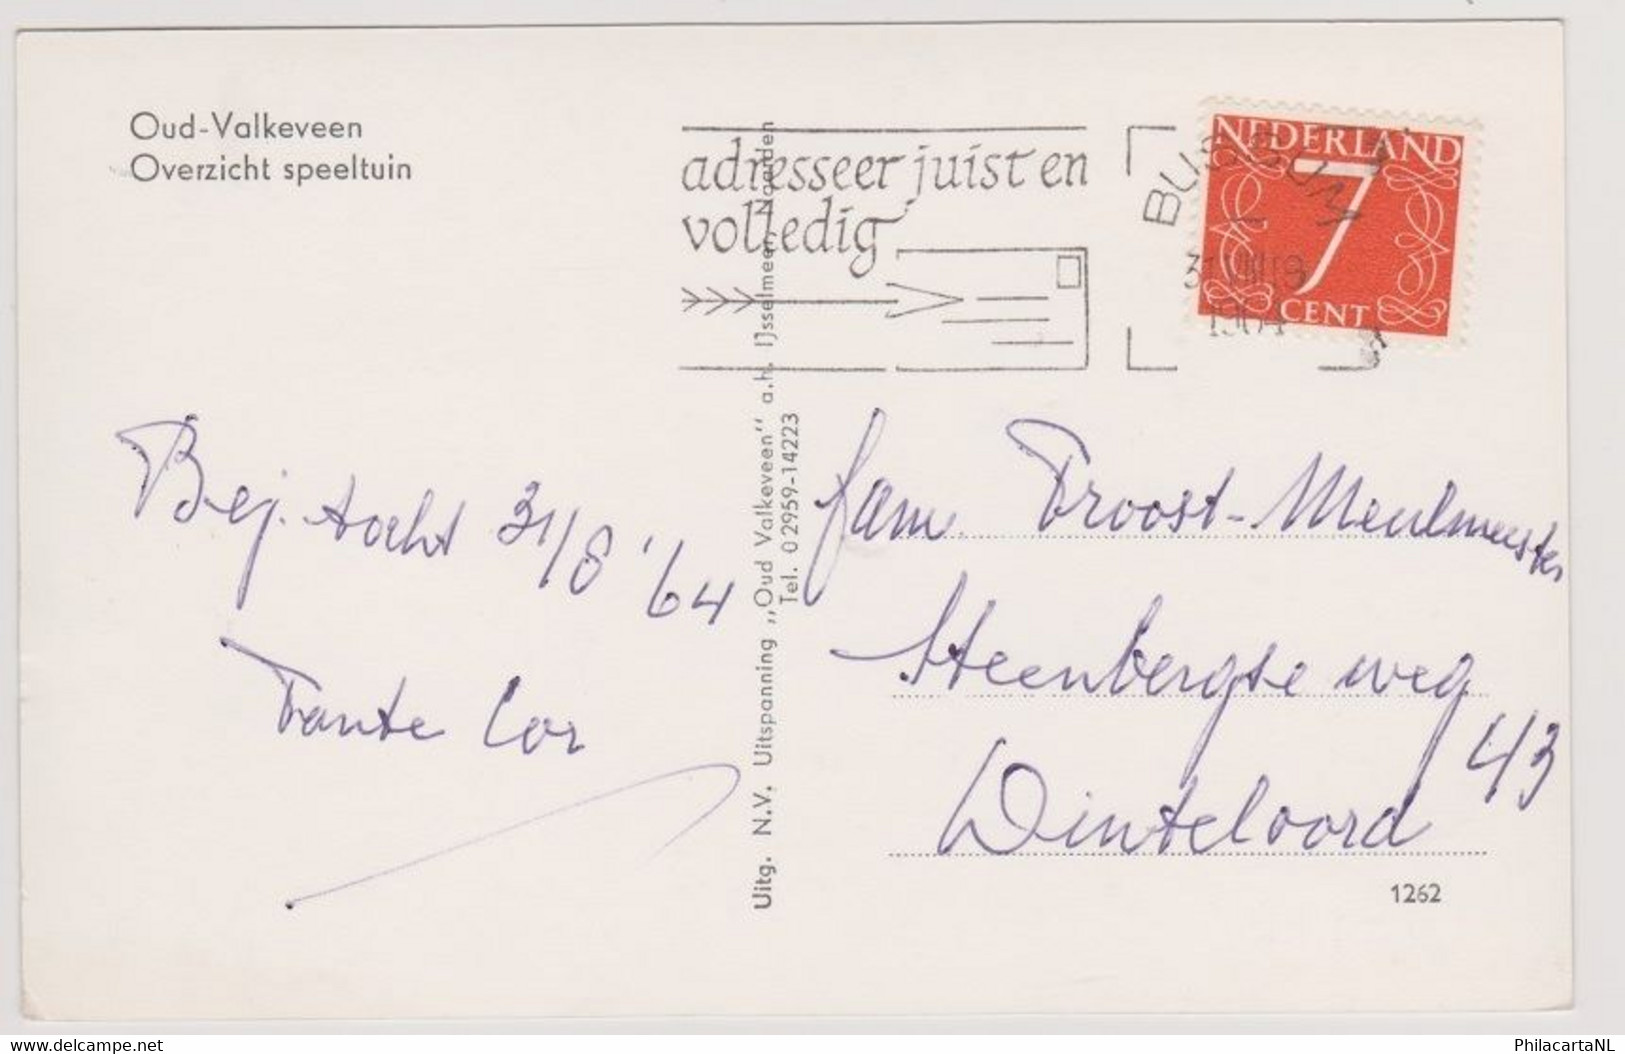 Oud-Valkeveen
Overzicht speeltuin
adresseer juist en
volledig
BUSSUM
31 VIII 19
1964
NEDERLAND
7
CENT
Uitg. N.V. Uitspanning „Oud Valkeveen" a.h. IJsselmeer, Naarden
Tel. 02959-14223
Bej. tocht 31/8 '64
Tante Cor
fam. Troost-Meulmeester
Steenbergse weg
43
Dinteloord
1262
www.delcampe.net
PhilacartaNL